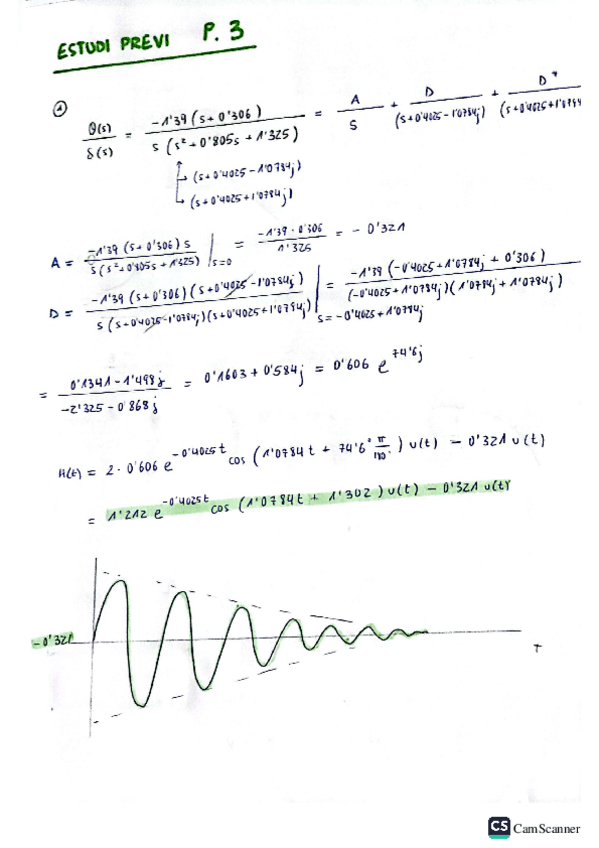 ESTUDI PREVI P. 3
① θ(s)/δ(s) = -1'39 (s+0'306) / s (s²+0'805s+1'325) = A/s + D/(s+0'4025-1'0784j) + D*/(s+0'4025+1'0784
(s+0'4025-1'0784j)
(s+0'4025+1'0784j)
A = -1'39 (s+0'306) s / s(s²+0'805s+1'325) |s=0 = -1'39 · 0'306 / 1'325 = - 0'321
D = -1'39 (s+0'306)(s+0'4025-1'0784j) / s (s+0'4025-1'0784j)(s+0'4025+1'0784j) |s=-0'4025+1'0784j = -1'39 (-0'4025+1'0784j + 0'306) / (-0'4025+1'0784j)(1'0784j+1'0784j)
= 0'1341-1'498j / -2'325-0'868j = 0'1603+0'584j = 0'606 e^74'6j
H(t) = 2·0'606 e^-0'4025t cos (1'0784t + 74'6° π/180) u(t) - 0'321 u(t)
= 1'212 e^-0'4025t cos (1'0784t + 1'302) u(t) - 0'321 u(t)
-0'321
T
CS CamScanner